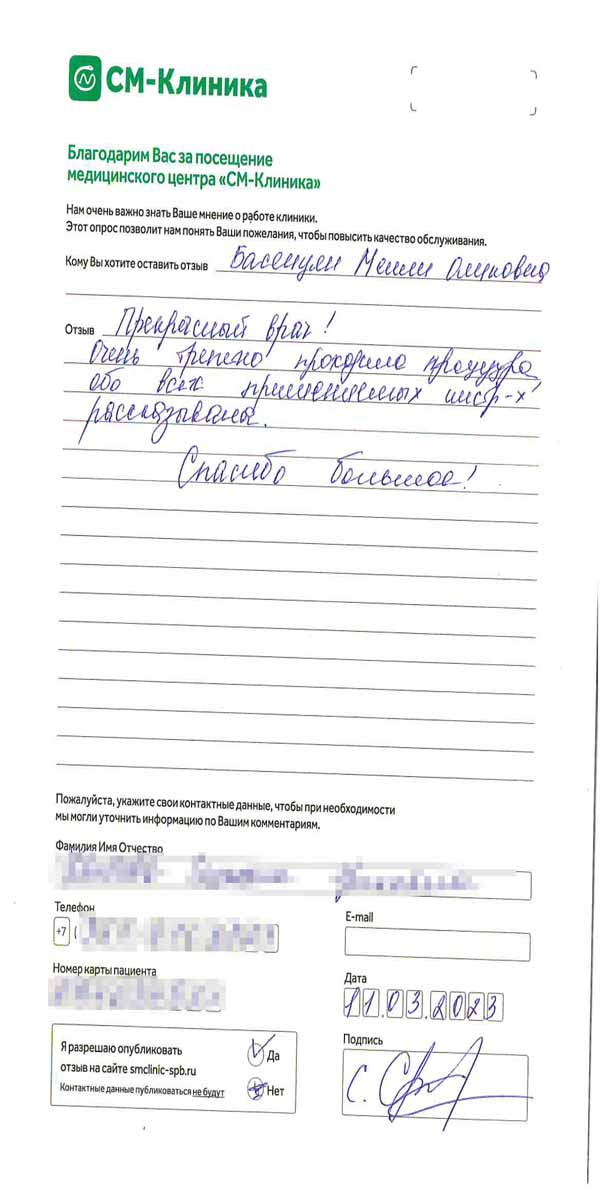 СМ-Клиника
Благодарим Вас за посещение
медицинского центра «СМ-Клиника»
Нам очень важно знать Ваше мнение о работе клиники.
Этот опрос позволит нам понять Ваши пожелания, чтобы повысить качество обслуживания.
Кому Вы хотите оставить отзыв
Отзыв Прекрасный врач!
Очень трепетно проходила процедура
обо всех применяемых инстр-х
рассказывала.
Спасибо большое!
Пожалуйста, укажите свои контактные данные, чтобы при необходимости
мы могли уточнить информацию по Вашим комментариям.
Фамилия Имя Отчество
Телефон
E-mail
+7 (
Номер карты пациента
Дата
11.03.2023
Я разрешаю опубликовать
отзыв на сайте smclinic-spb.ru
Контактные данные публиковаться не будут
Да
Нет
Подпись